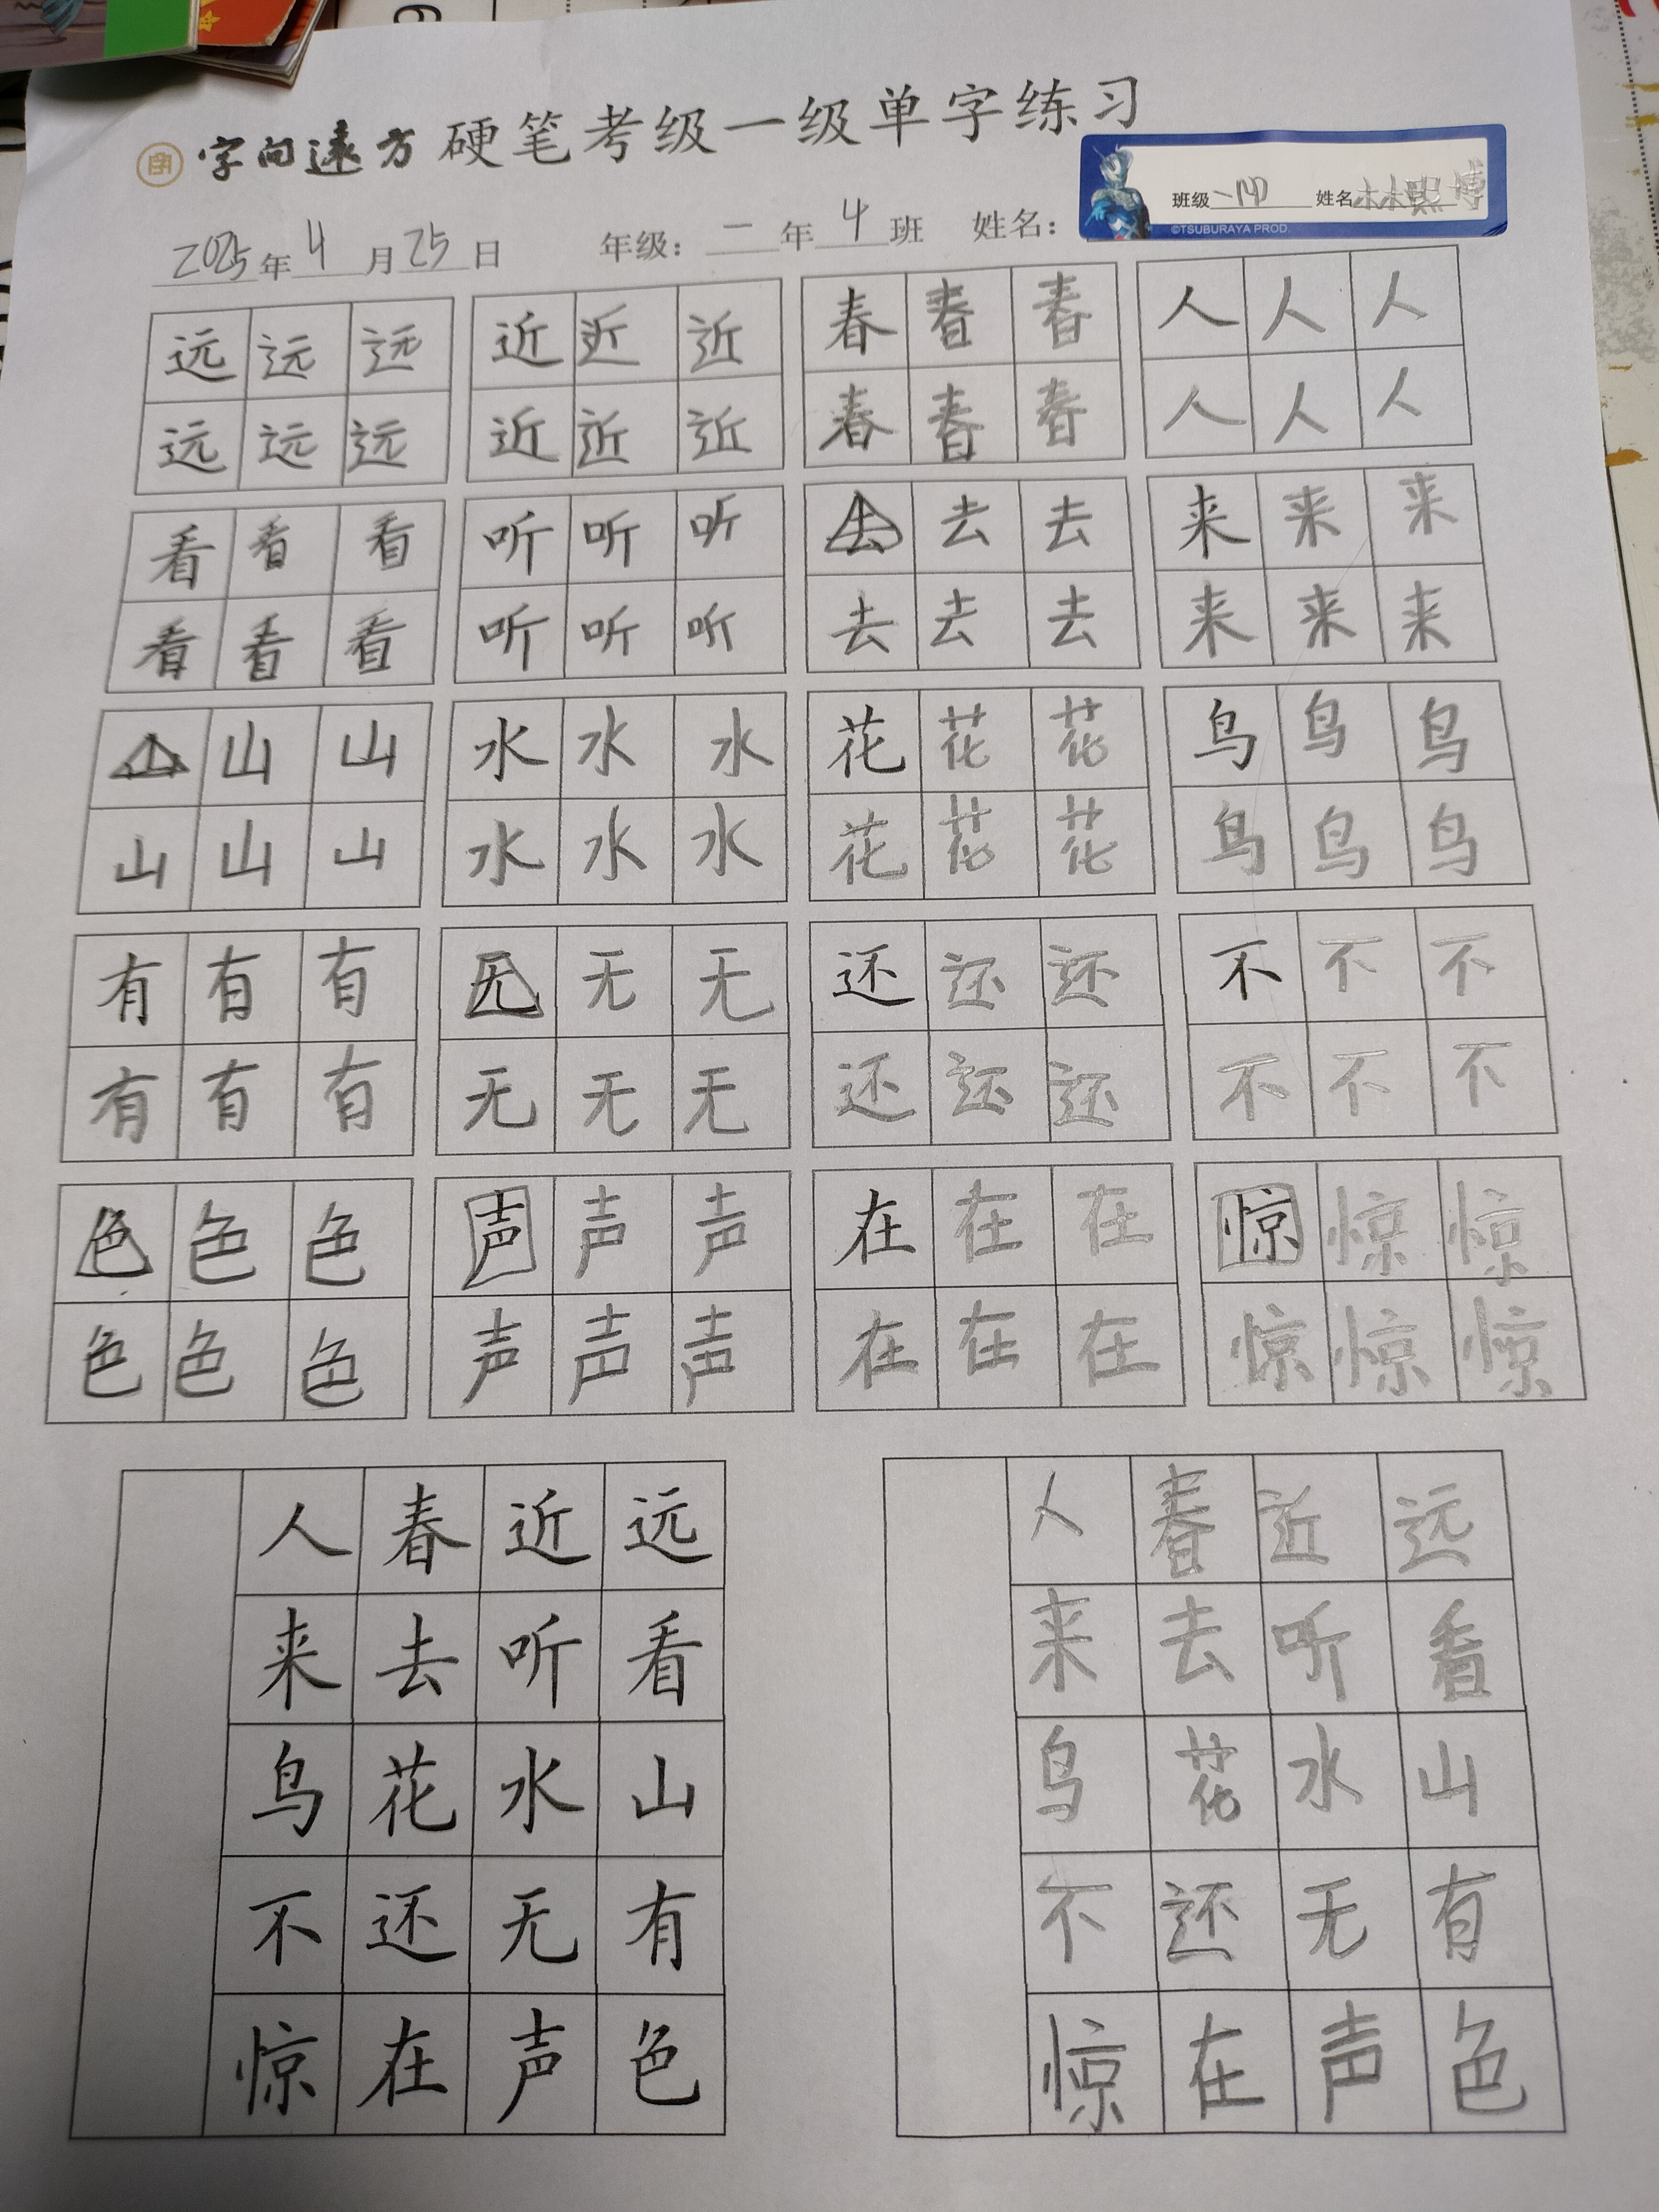 字向遠方 硬笔考级一级单字练习
班级 一(4) 姓名 林熙博
©TSUBURAYA PROD.
2025年4月25日 年级：二年4班 姓名：
远远远 近近近 春春春 人人人
远远远 近近近 春春春 人人人
看看看 听听听 去去去 来来来
看看看 听听听 去去去 来来来
山山山 水水水 花花花 鸟鸟鸟
山山山 水水水 花花花 鸟鸟鸟
有有有 无无无 还还还 不不不
有有有 无无无 还还还 不不不
色色色 声声声 在在在 惊惊惊
色色色 声声声 在在在 惊惊惊
远看山有色
近听水无声
春去花还在
人来鸟不惊
远看山有色
近听水无声
春去花还在
人来鸟不惊